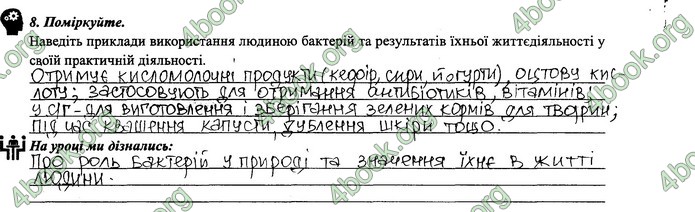 8. Поміркуйте.
Наведіть приклади використання людиною бактерій та результатів їхньої життєдіяльності у
своїй практичній діяльності.
Отримує кисломолочні продукти (кефір, сири, йогурти), оцтову кис-
лоту; застосовують для отримання антибіотиків, вітамінів,
у с/г - для виготовлення і зберігання зелених кормів для тварин;
під час квашення капусти, дублення шкіри тощо.
На уроці ми дізнались:
Про роль бактерій у природі та значення їхнє в житті
людини.
4book.org